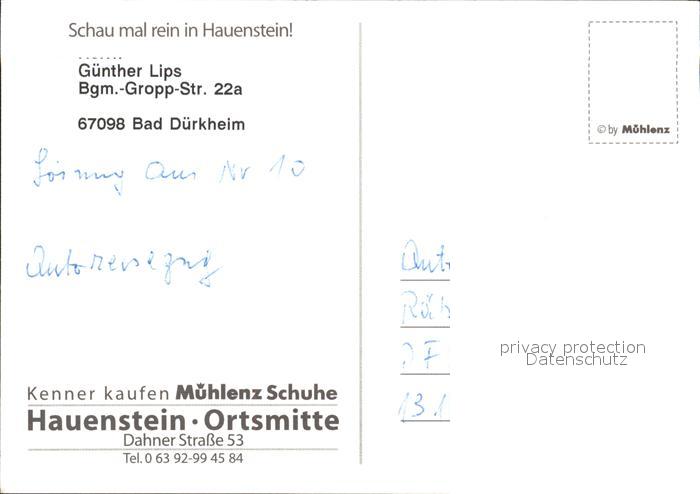 Schau mal rein in Hauenstein!
Günther Lips
Bgm.-Gropp-Str. 22a
67098 Bad Dürkheim
Lösung aus Nr 10
Autoreisezug
© by Mühlenz
privacy protection
Datenschutz
13.1
Kenner kaufen Mühlenz Schuhe
Hauenstein · Ortsmitte
Dahner Straße 53
Tel. 0 63 92-99 45 84